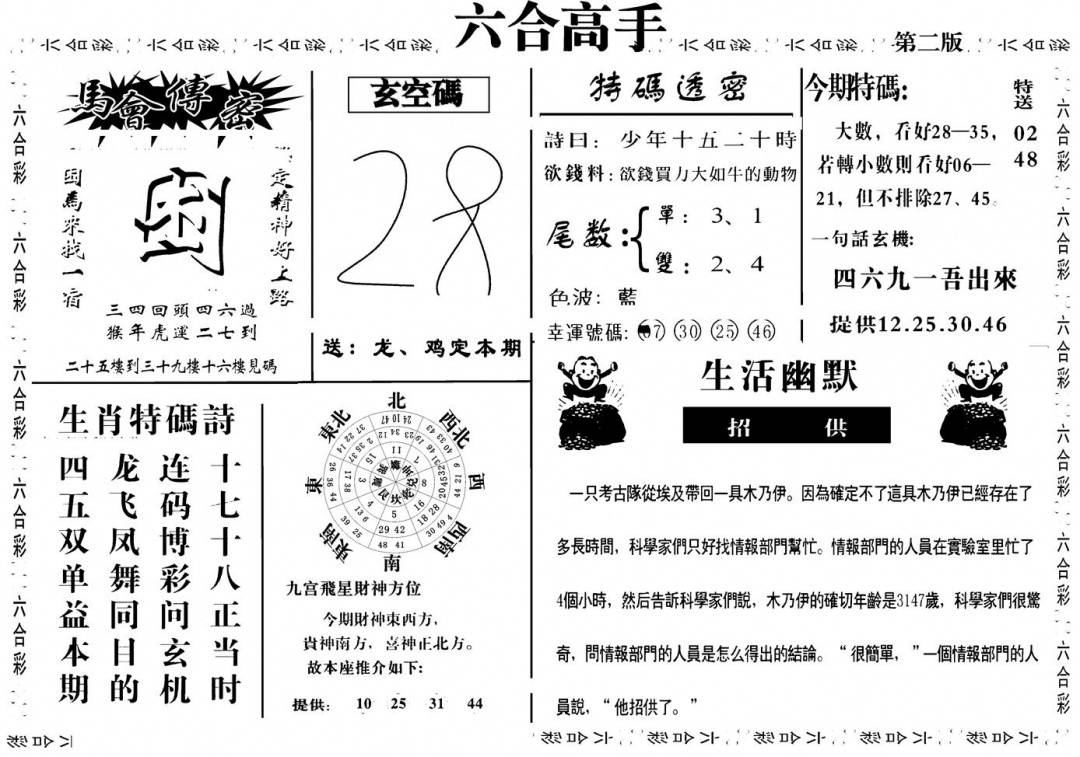 六合高手
第二版
馬會傳密
因馬來找一宿
定精神好上路
三四回頭四六過
猴年虎運二七到
二十五樓到三十九樓十六樓見碼
玄空碼
28
送：龙、鸡定本期
特碼透密
詩曰：少年十五二十時
欲錢料：欲錢買力大如牛的動物
尾数：
單：3、1
雙：2、4
色波：藍
幸運號碼：(30) (25) (46)
今期特碼:
特送
02
48
大數，看好28—35，
若轉小數則看好06—
21，但不排除27、45。
一句話玄機:
四六九一吾出來
提供12.25.30.46
生肖特碼詩
十七十八正当时
连码博彩问玄机
龙飞凤舞同目的
四五双单益本期
北
西北
西
西南
南
東南
東
東北
九宫飛星財神方位
今期財神東西方，
貴神南方，喜神正北方。
故本座推介如下:
提供: 10 25 31 44
生活幽默
招供
一只考古隊從埃及帶回一具木乃伊。因為確定不了這具木乃伊已經存在了
多長時間，科學家們只好找情報部門幫忙。情報部門的人員在實驗室里忙了
4個小時，然后告訴科學家們說，木乃伊的確切年齡是3147歲，科學家們很驚
奇，問情報部門的人員是怎么得出的結論。“很簡單，”一個情報部門的人
員說，“他招供了。”
六合彩